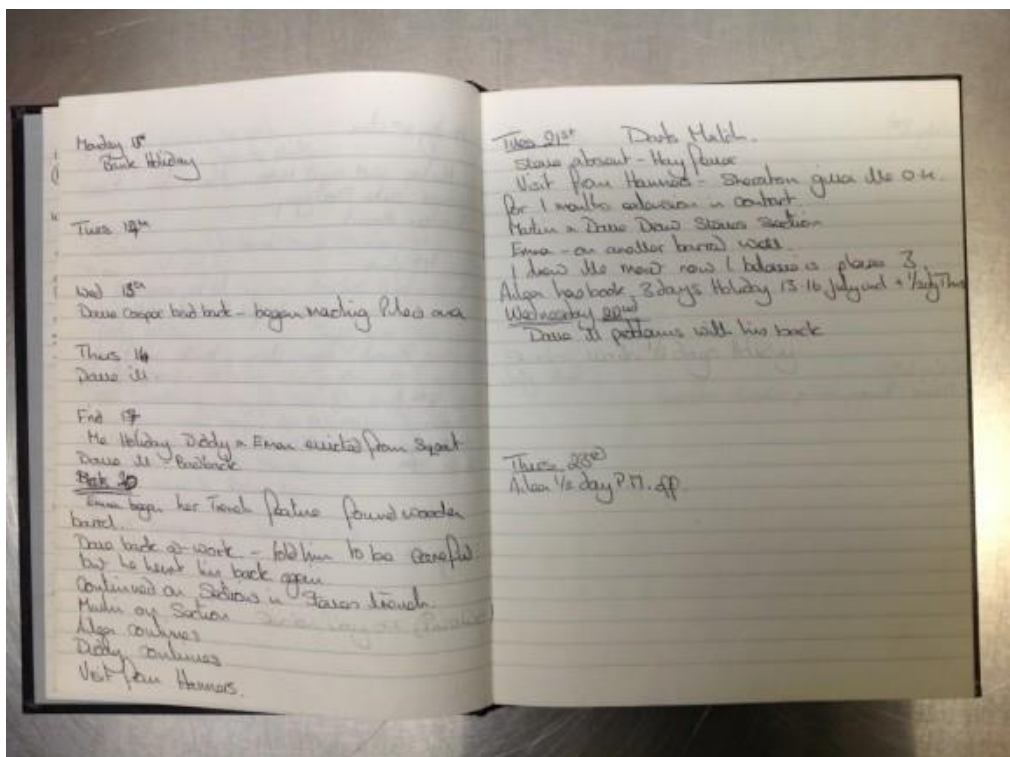 Monday 13th
Bank Holiday
Tues 14th
Wed 15th
Dave Cooper bad back - began machining over
Thurs 16
Dave ill.
Frid 17
Me Holiday Diddy + Eman evicted from
Dave ill - Bad back
20
Emma began her Trench feature found wooden
barrel.
Dave back at work - told him to be careful
but he hurt his back again
Continued on Sections in Steves trench.
Martin on Section
Ailsa continues
Diddy continues
Visit from Hammers.
Tues 21st Darts Match.
Steve absent - Hay fever
Visit from Hammers - Sheraton given the O.K.
for 1 months extension in contract.
Martin + Dave Draw Steves Section
Emma - on another barrel well.
I draw the
has book 3 days Holiday 13-16 July + 1/2 day Thurs
Wednesday 22nd
Dave ill problems with his back
Thurs 23rd
1/2 day P.M. off